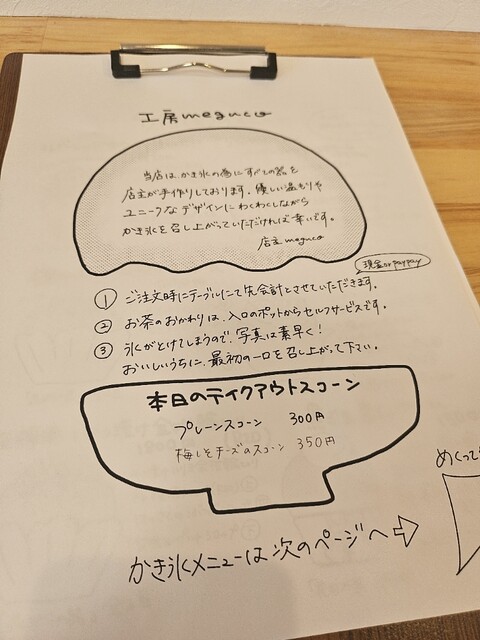 工房meguco
当店は、かき氷の為にすべての器を
店主が手作りしております。優しい温もりや
ユニークなデザインにわくわくしながら
かき氷を召し上がっていただければ幸いです。
店主 meguco
現金orpaypay
① ご注文時にテーブルにて先会計とさせていただきます。
② お茶のおかわりは、入口のポットからセルフサービスです。
③ 氷がとけてしまうので、写真は素早く!
おいしいうちに、最初の一口を召し上がって下さい。
本日のテイクアウトスコーン
プレーンスコーン 300円
梅しそチーズのスコーン 350円
めくって
かき氷メニューは次のページへ⇨